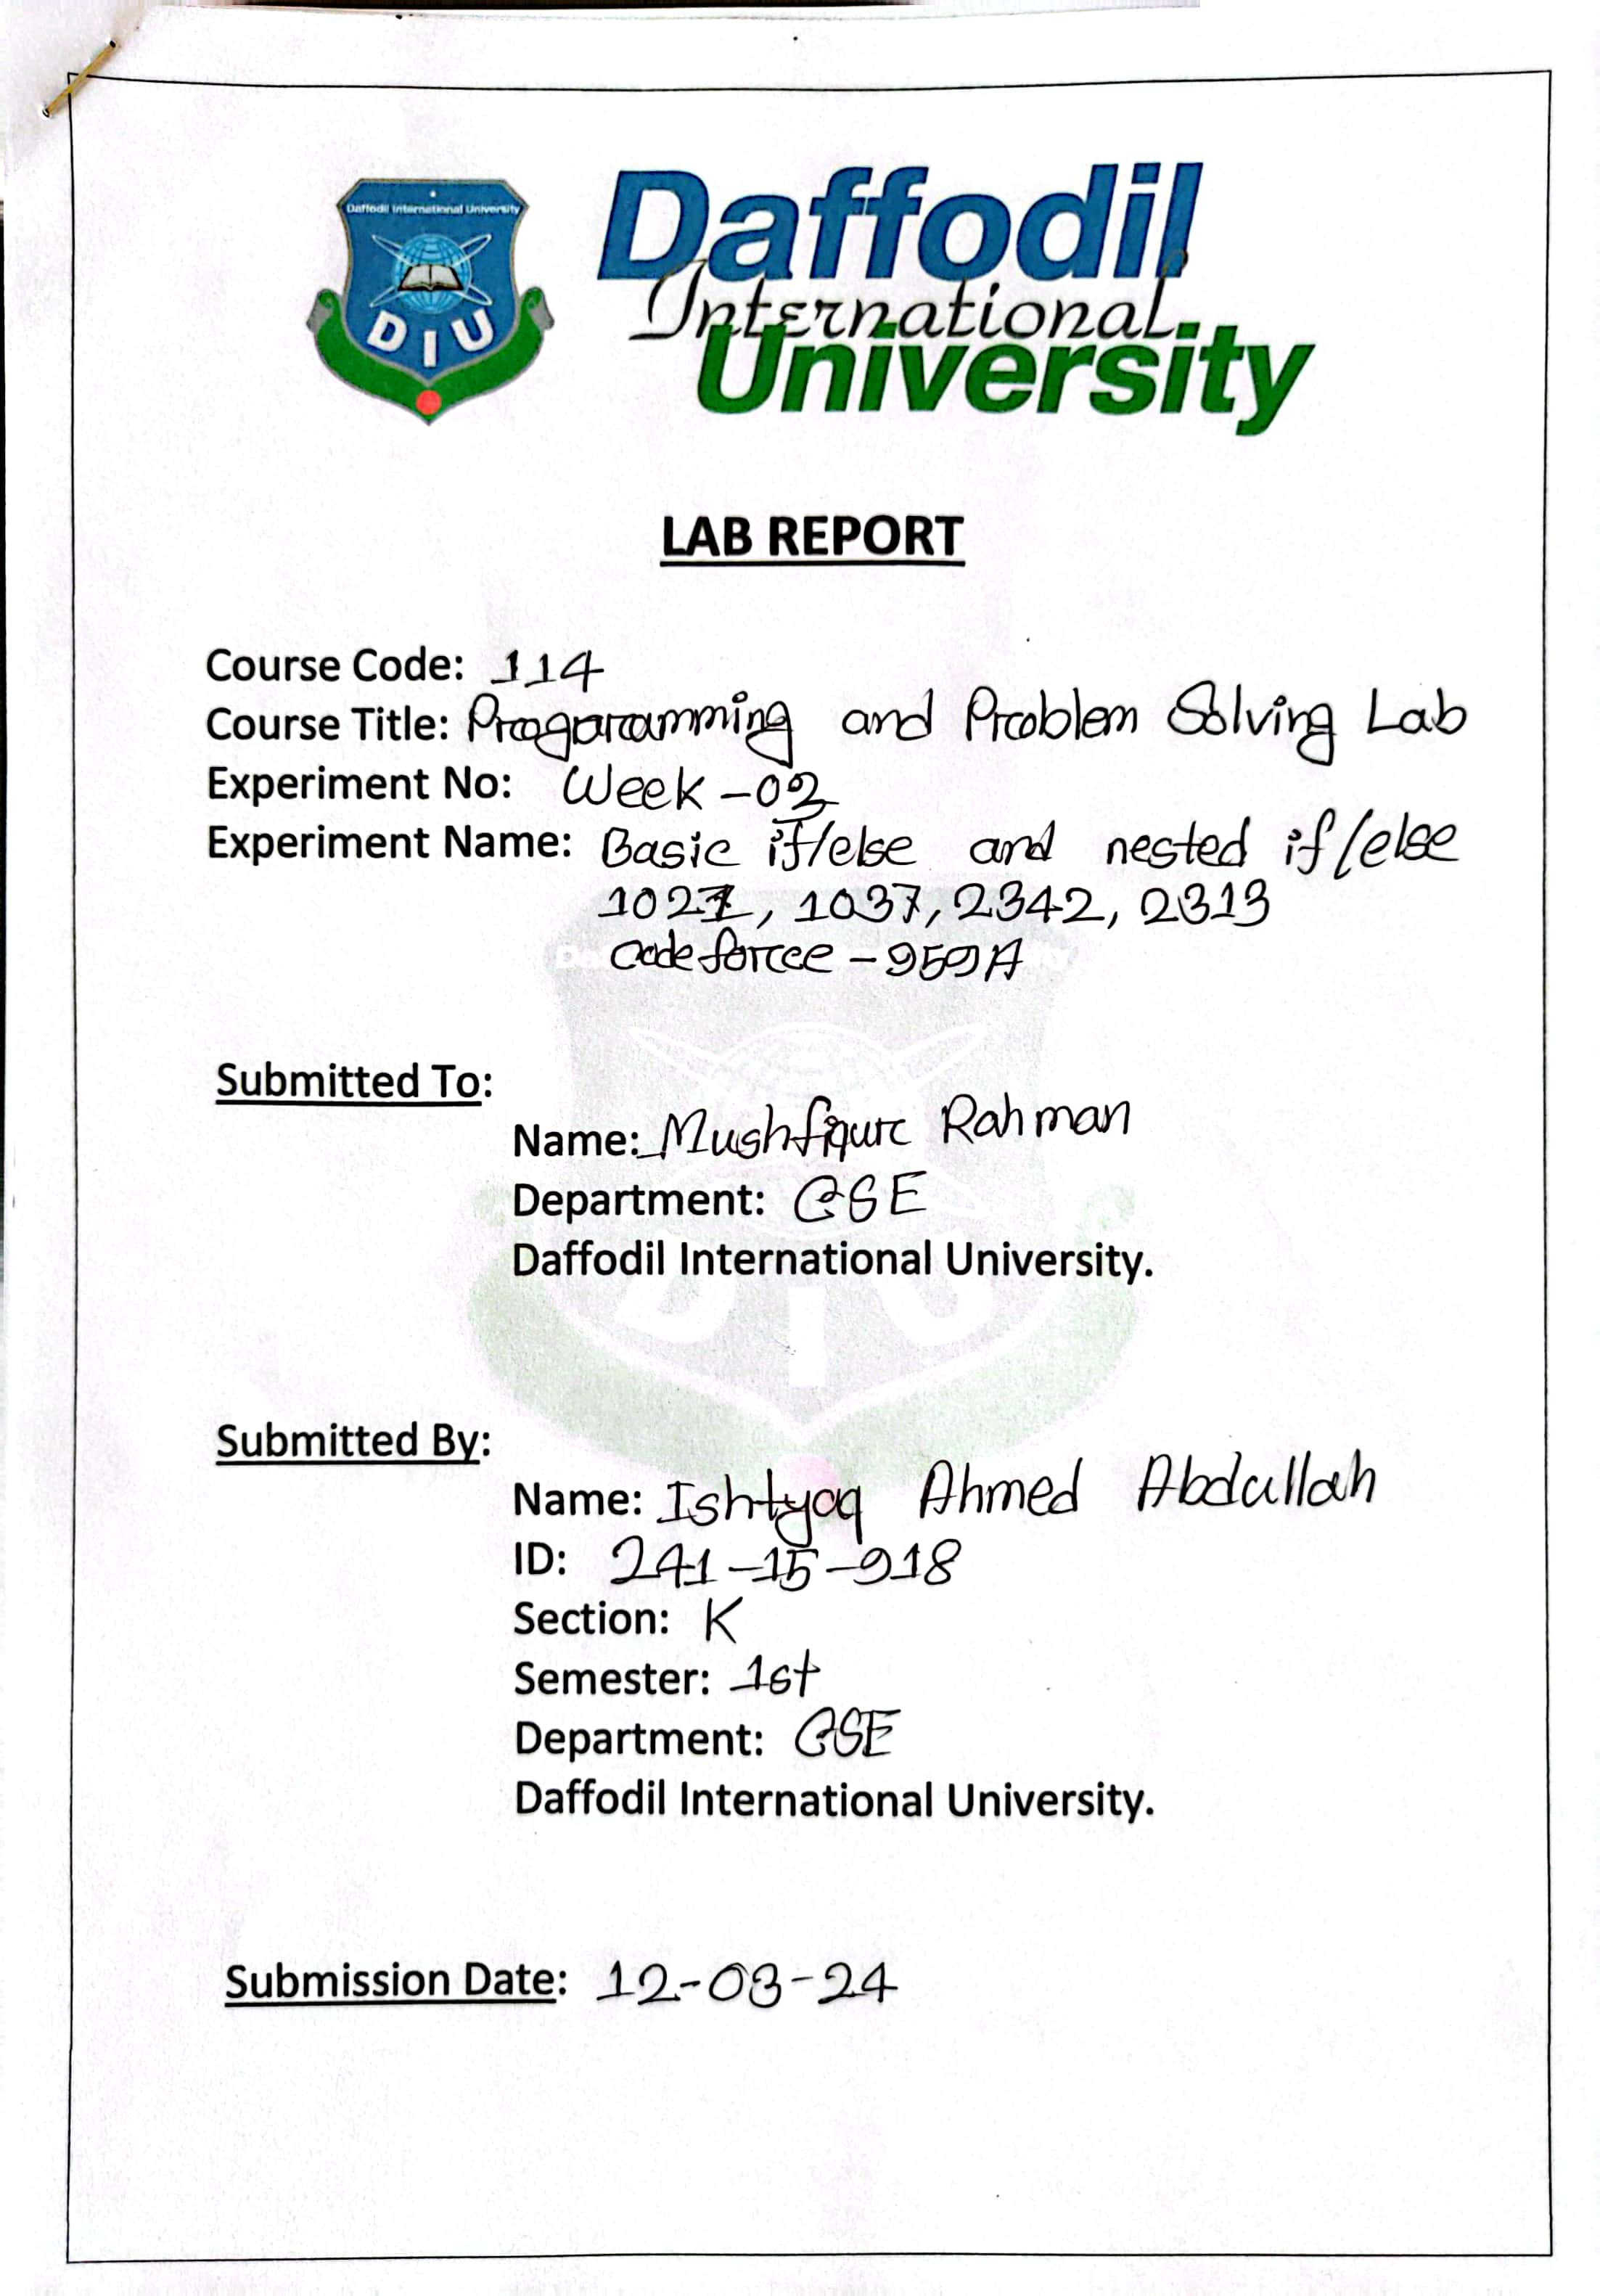 Daffodil International University
DIU
Daffodil
International
University
LAB REPORT
Course Code: 114
Course Title: Progaramming and Problem Solving Lab
Experiment No: Week-02
Experiment Name: Basic if/else and nested if/else
1021, 1037, 2342, 2313
Codeforce - 959A
Submitted To:
Name: Mushfiqur Rahman
Department: CSE
Daffodil International University.
DIU
Submitted By:
Name: Ishtyaq Ahmed Abdullah
ID: 241-15-918
Section: K
Semester: 1st
Department: CSE
Daffodil International University.
Submission Date: 12-03-24